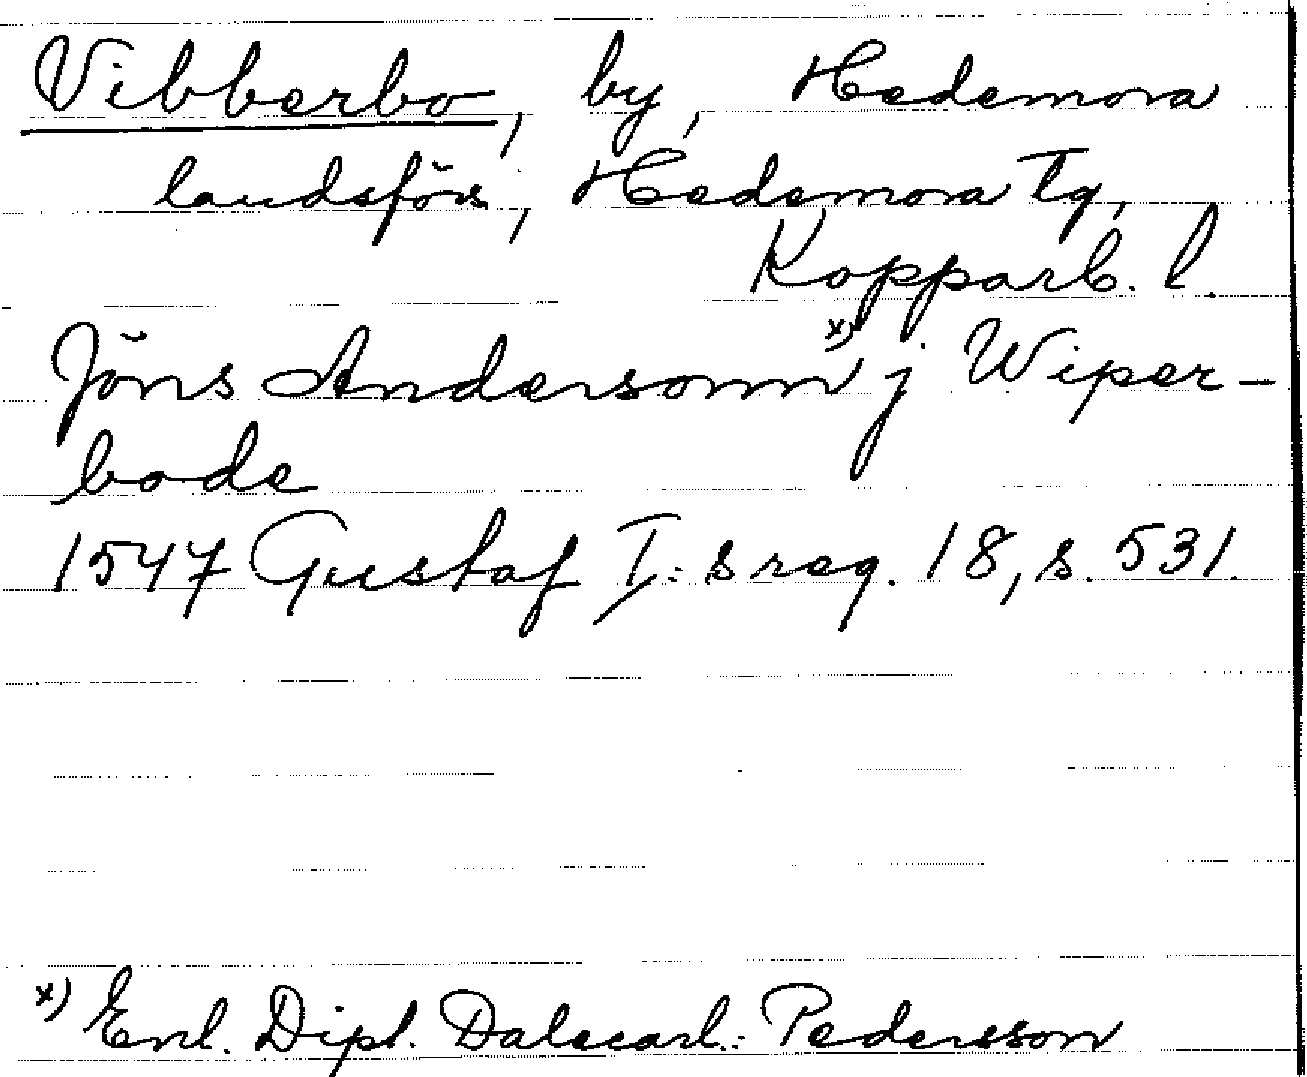 Vibberbo, by, Hedemora
landsförs, Hedemora tg,
Kopparb. l.
Jöns Andersonn x) j Wiper-
bode
1547 Gustaf I:s reg. 18, s. 531.
x) Enl. Dipl. Dalecarl.: Pedersson